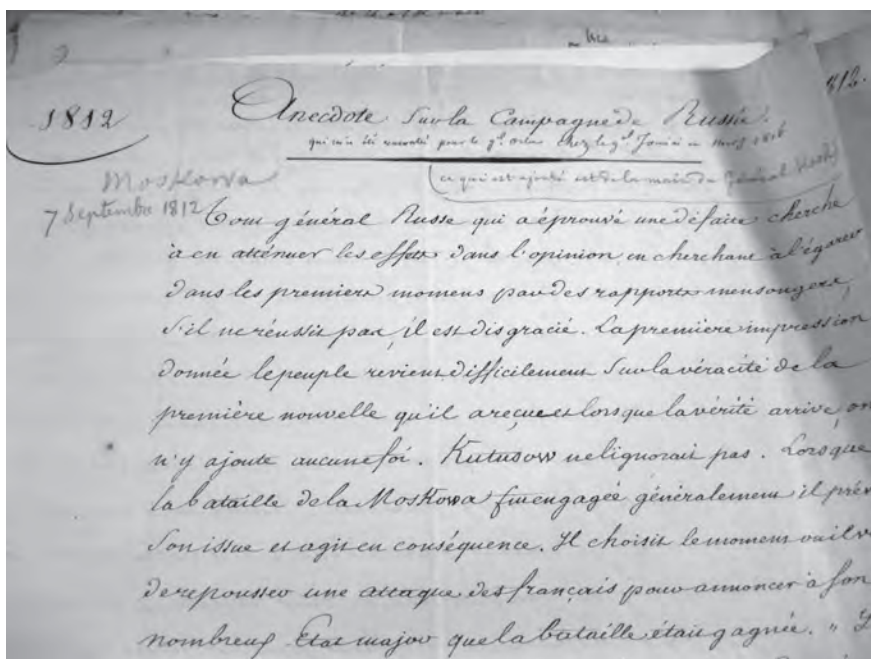 1812
Anecdote sur la Campagne de Russie.
qui m'a été racontée par le gl chez le gl Jomini en mars 1816
(ce qui est ajouté est de la main du Général
812.
Moskowa
7 Septembre 1812
Tout général Russe qui a éprouvé une défaite cherche
à en atténuer les effets dans l'opinion en cherchant à l'égarer
dans les premiers momens par des rapports mensongers,
S'il ne réussit pas, il est disgracié. La première impression
donnée le peuple revient difficilement sur la véracité de la
première nouvelle qu'il a reçue et lorsque la vérité arrive, on
n'y ajoute aucune foi. Kutusow ne l'ignorait pas. Lorsque
la bataille de la Moskowa fut engagée généralement il prév
son issue et agit en conséquence. Il choisit le moment où il v
de repousser une attaque des français pour annoncer à son
nombreux Etat major que la bataille était gagnée. "